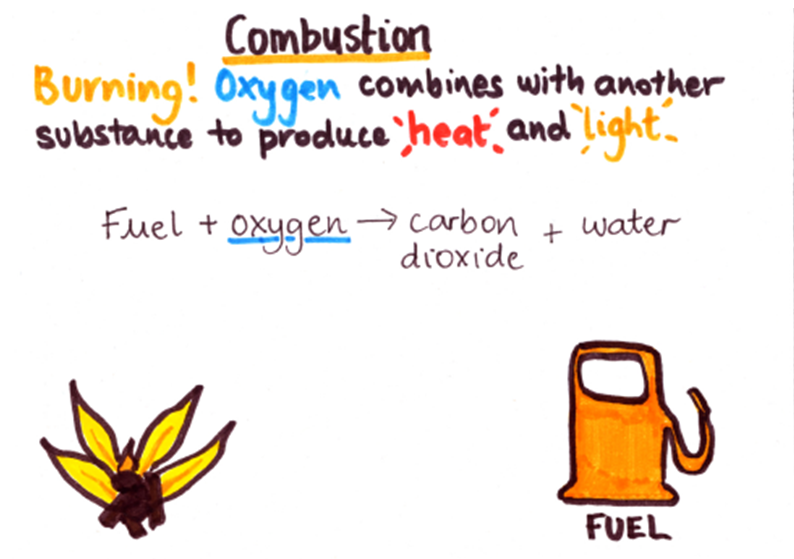 Combustion
Burning! Oxygen combines with another
substance to produce heat and light
Fuel + oxygen → carbon dioxide + water
FUEL